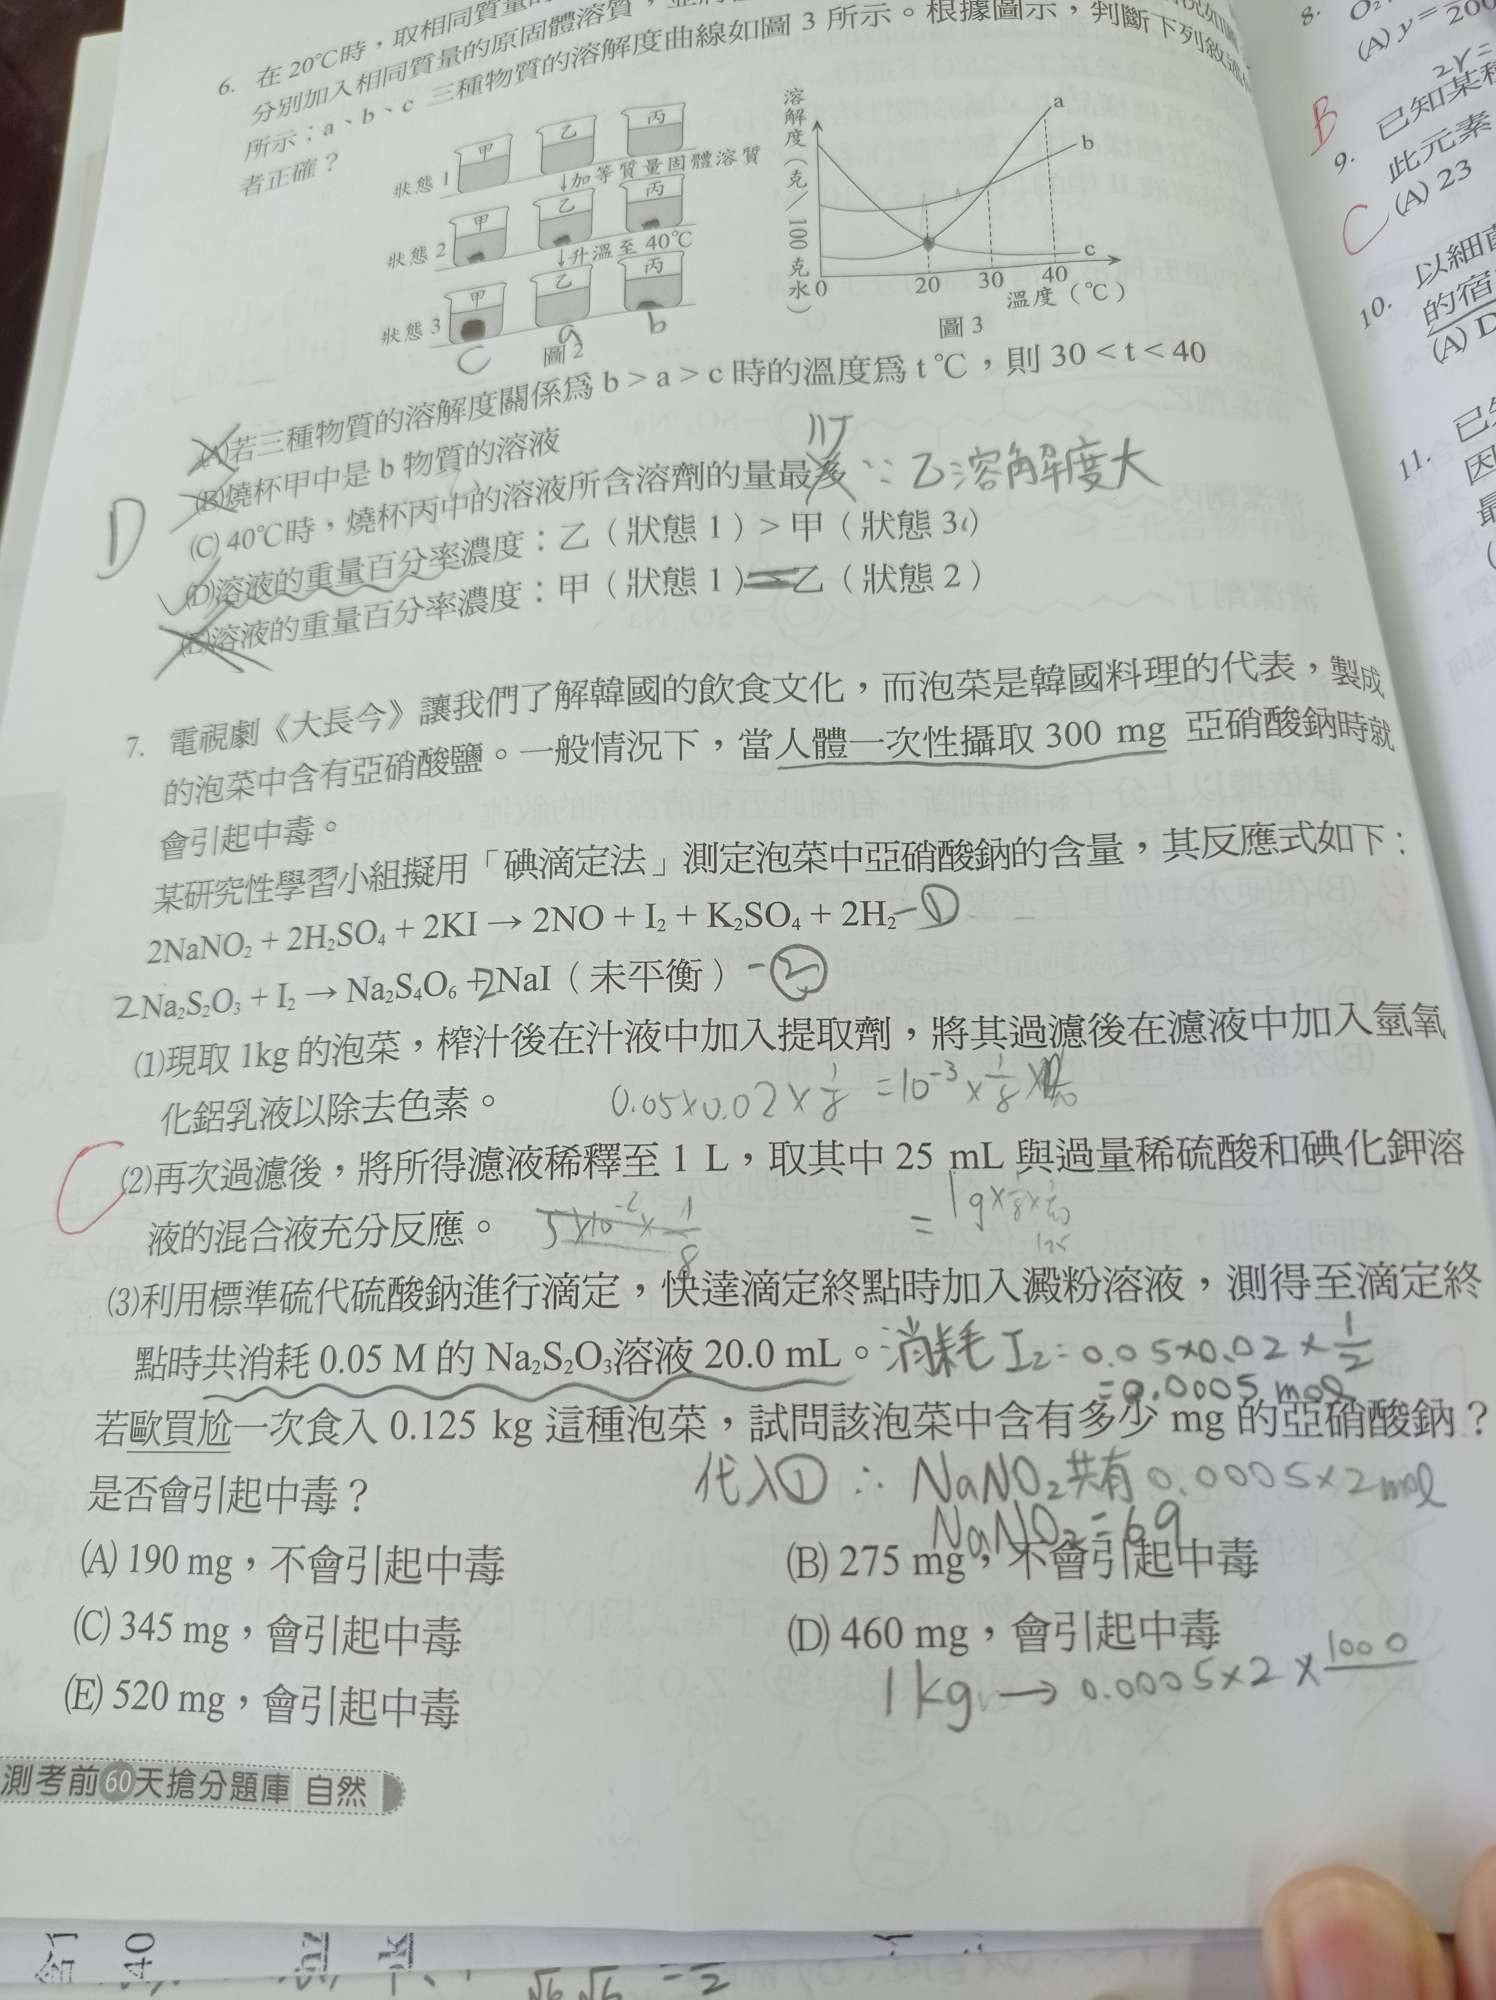 6. 在 20℃時，取相同質量的
分別加入相同質量的原固體溶質，
所示；a、b、c 三種物質的溶解度曲線如圖 3 所示。根據圖示，判斷下列敘述
者正確？
狀態 1 甲 乙 丙
↓加等質量固體溶質
狀態 2 甲 乙 丙
↓升溫至 40℃
狀態 3 甲 乙 丙
c a b
圖 2
溶解度（克／100 克水）
a
b
c
0 20 30 40
溫度（℃）
圖 3
(A)若三種物質的溶解度關係為 b > a > c 時的溫度為 t ℃，則 30 < t < 40
(B)燒杯甲中是 b 物質的溶液
(C) 40℃時，燒杯丙中的溶液所含溶劑的量最多 ∵ 乙溶解度大
D
(D)溶液的重量百分率濃度：乙（狀態 1）> 甲（狀態 3）
(E)溶液的重量百分率濃度：甲（狀態 1） 乙（狀態 2）
7. 電視劇《大長今》讓我們了解韓國的飲食文化，而泡菜是韓國料理的代表，製成
的泡菜中含有亞硝酸鹽。一般情況下，當人體一次性攝取 300 mg 亞硝酸鈉時就
會引起中毒。
某研究性學習小組擬用「碘滴定法」測定泡菜中亞硝酸鈉的含量，其反應式如下：
2NaNO₂ + 2H₂SO₄ + 2KI → 2NO + I₂ + K₂SO₄ + 2H₂ -①
2Na₂S₂O₃ + I₂ → Na₂S₄O₆ + 2NaI（未平衡）-②
(1)現取 1kg 的泡菜，榨汁後在汁液中加入提取劑，將其過濾後在濾液中加入氫氧
化鋁乳液以除去色素。 0.05×0.02×1/8 = 10⁻³×1/8×
C
(2)再次過濾後，將所得濾液稀釋至 1 L，取其中 25 mL 與過量稀硫酸和碘化鉀溶
液的混合液充分反應。 5×10⁻²×1/8 = 1g×
(3)利用標準硫代硫酸鈉進行滴定，快達滴定終點時加入澱粉溶液，測得至滴定終
點時共消耗 0.05 M 的 Na₂S₂O₃溶液 20.0 mL。消耗 I₂=0.05×0.02×1/2
=0.0005 mol
若歐買尬一次食入 0.125 kg 這種泡菜，試問該泡菜中含有多少 mg 的亞硝酸鈉？
是否會引起中毒？ 代入① ∴ NaNO₂共有 0.0005×2mol
NaNO₂=69
(A) 190 mg，不會引起中毒 (B) 275 mg，不會引起中毒
(C) 345 mg，會引起中毒 (D) 460 mg，會引起中毒
1kg → 0.0005×2×1000
(E) 520 mg，會引起中毒
測考前60天搶分題庫 自然
8.
(A) y =
200
B
9. 已知某種
此元素
(A) 23
C
10. 以細菌
的宿
(A) D
11.
因
最
40